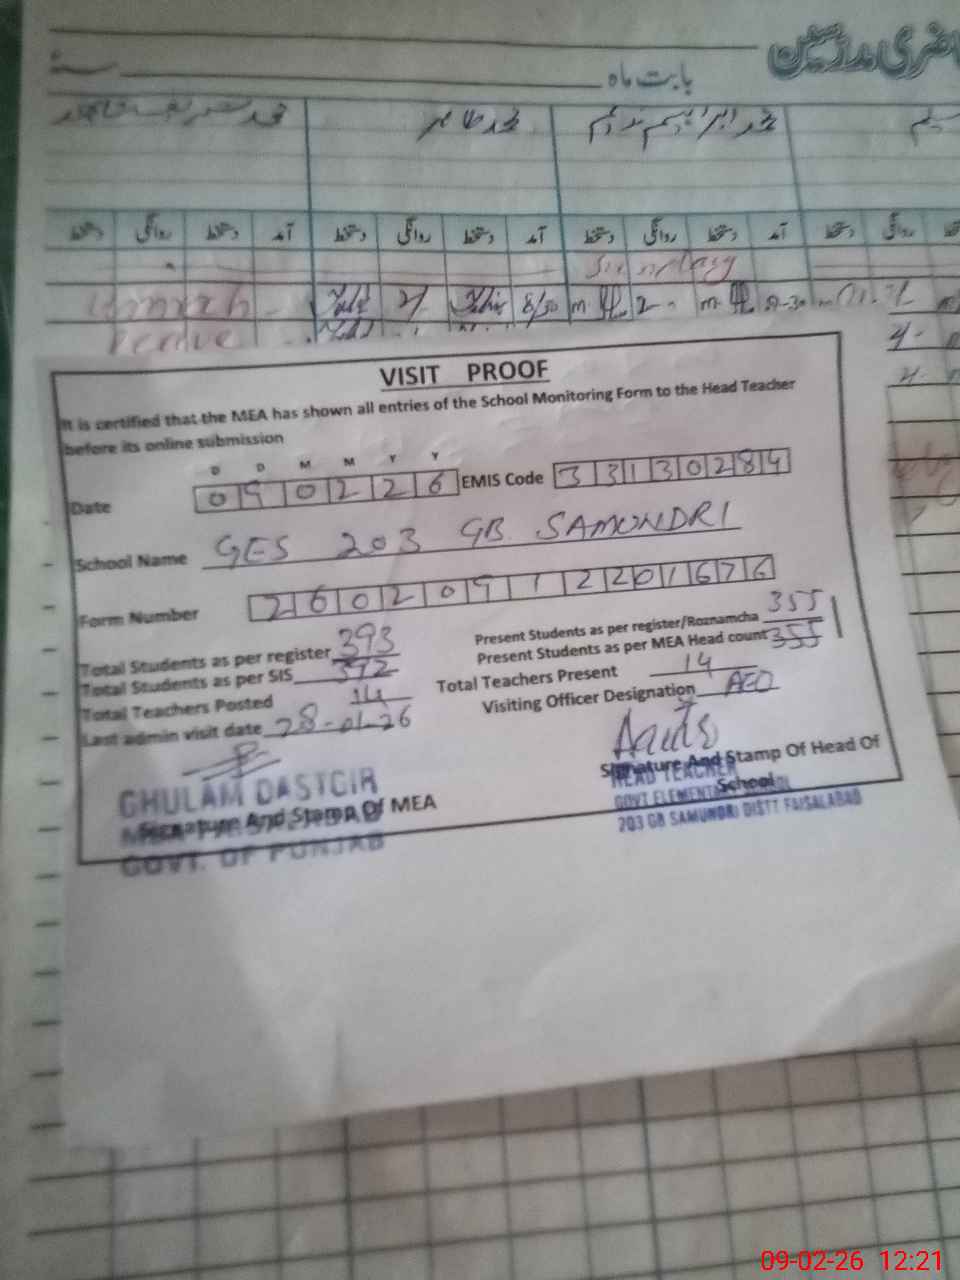 حاضری مدرسین
بابت ماہ
سنہ
محمد طاہر
محمد ابراہیم ندیم
دستخط روانگی دستخط آمد دستخط روانگی دستخط آمد دستخط روانگی دستخط آمد دستخط روانگی دستخط
Sunday
8/30
VISIT PROOF
It is certified that the MEA has shown all entries of the School Monitoring Form to the Head Teacher
before its online submission
D D M M Y Y
Date 0 9 0 2 2 6 EMIS Code 3 3 1 3 0 2 8 4
School Name GES 203 GB SAMUNDRI
Form Number 2 6 0 2 0 9 1 2 2 0 1 6 7 6
Total Students as per register 393 Present Students as per register/Roznamcha 355
Total Students as per SIS 392 Present Students as per MEA Head count 355
Total Teachers Posted 14 Total Teachers Present 14
Last admin visit date 28-01-26 Visiting Officer Designation AEO
Signature And Stamp Of MEA
GHULAM DASTGIR
GOVT. OF PUNJAB
Signature And Stamp Of Head Of
School
HEAD TEACHER
GOVT ELEMENTARY SCHOOL
203 GB SAMUNDRI DISTT FAISALABAD
09-02-26 12:21